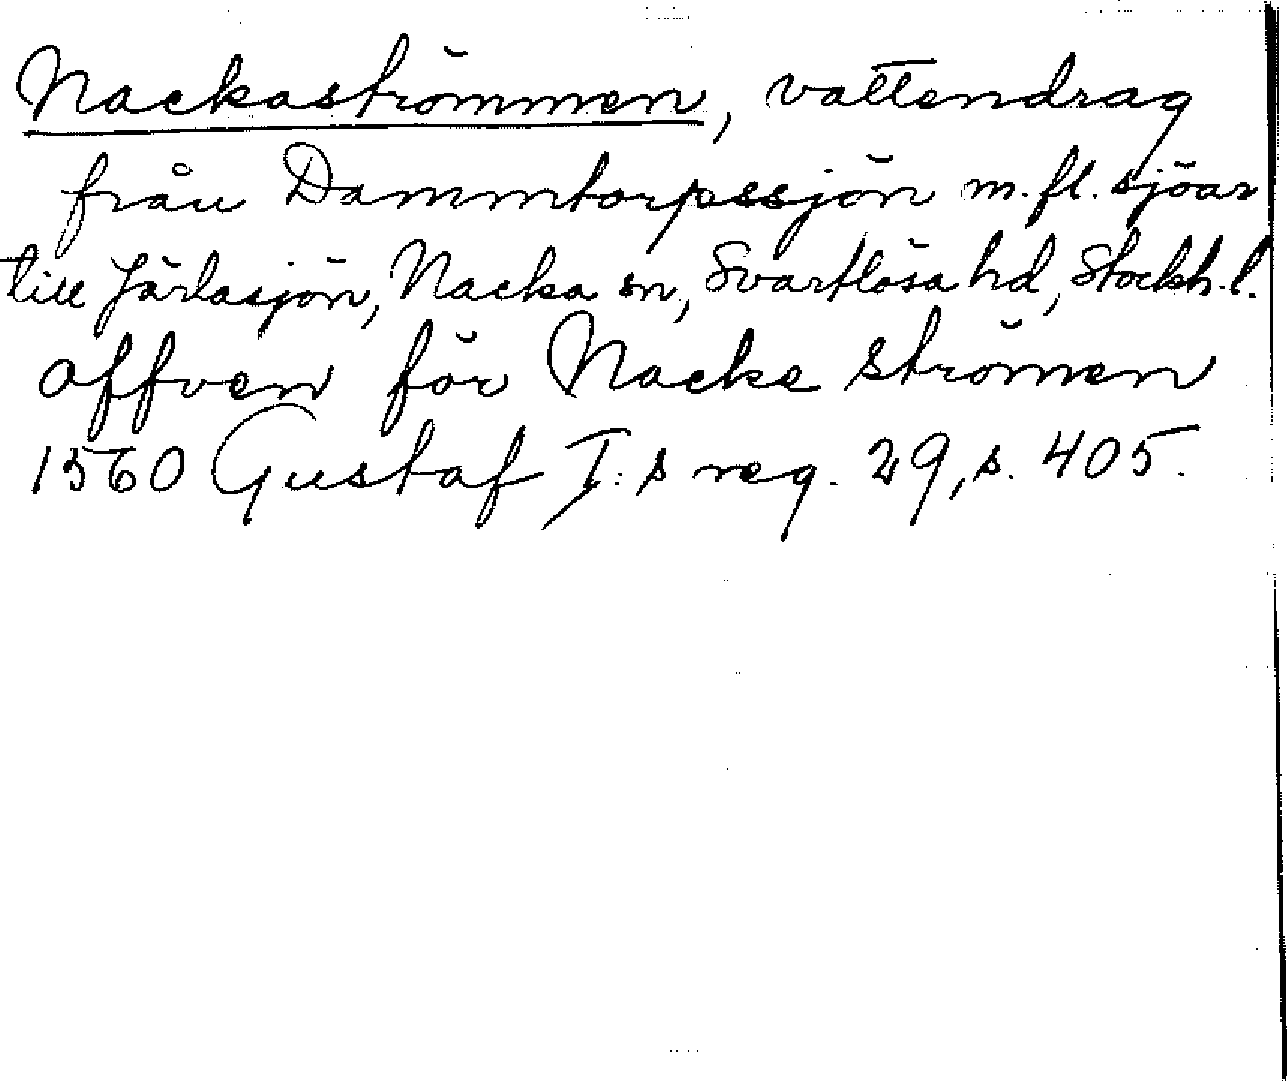 Nackaströmmen, vattendrag
från Dammtorpssjön m.fl. sjöar
till Järlasjön, Nacka sn, Svartlösa hd, Stockh. l.
offven för Nacke strömen
1560 Gustaf I:s reg. 29, s. 405.